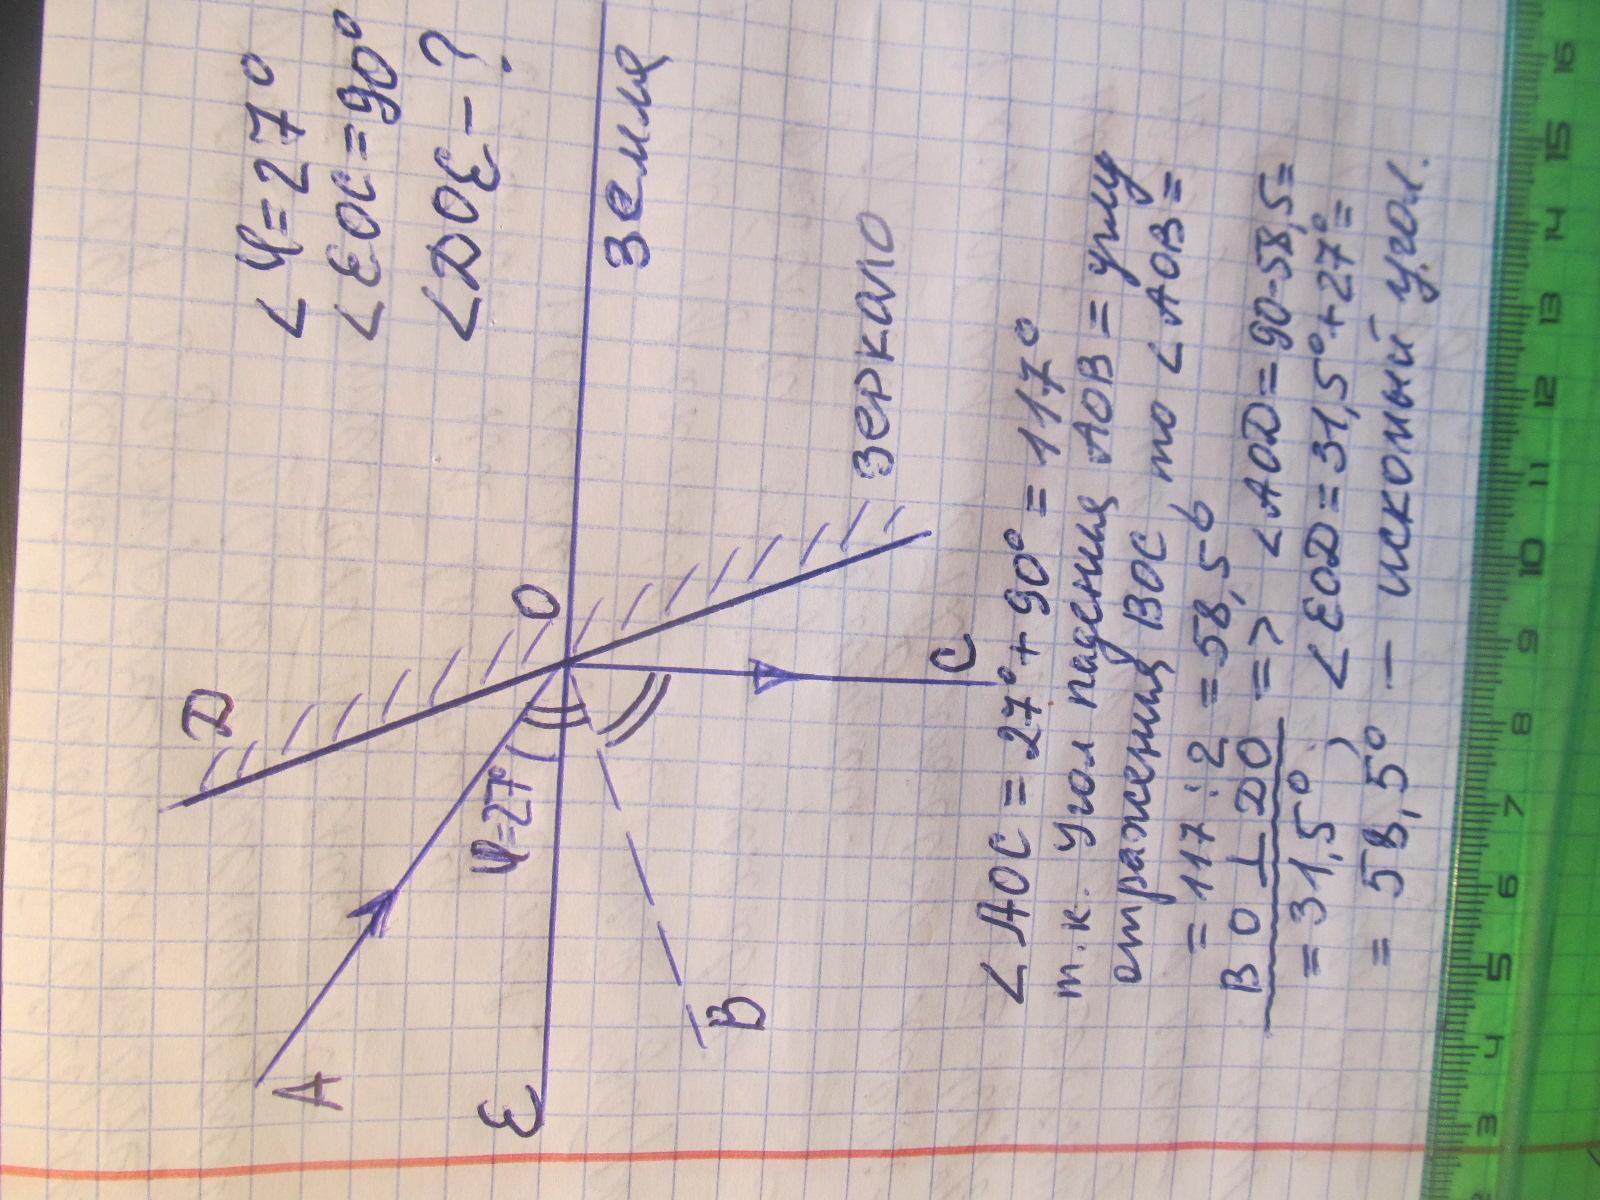 ∠φ=27°
∠ЕОС=90°
∠DOE-?
D
O
Земля
A
φ=27°
E
зеркало
C
B
∠AOC=27°+90°=117°
т.к. Угол падения AOB = углу
отражения BOC то ∠AOB=
=117:2=58,5°
BO⊥DO => ∠AOD=90-58,5=
=31,5°; ∠EOD=31,5°+27°=
=58,5° - искомый угол.
3 4 5 6 7 8 9 10 11 12 13 14 15 16